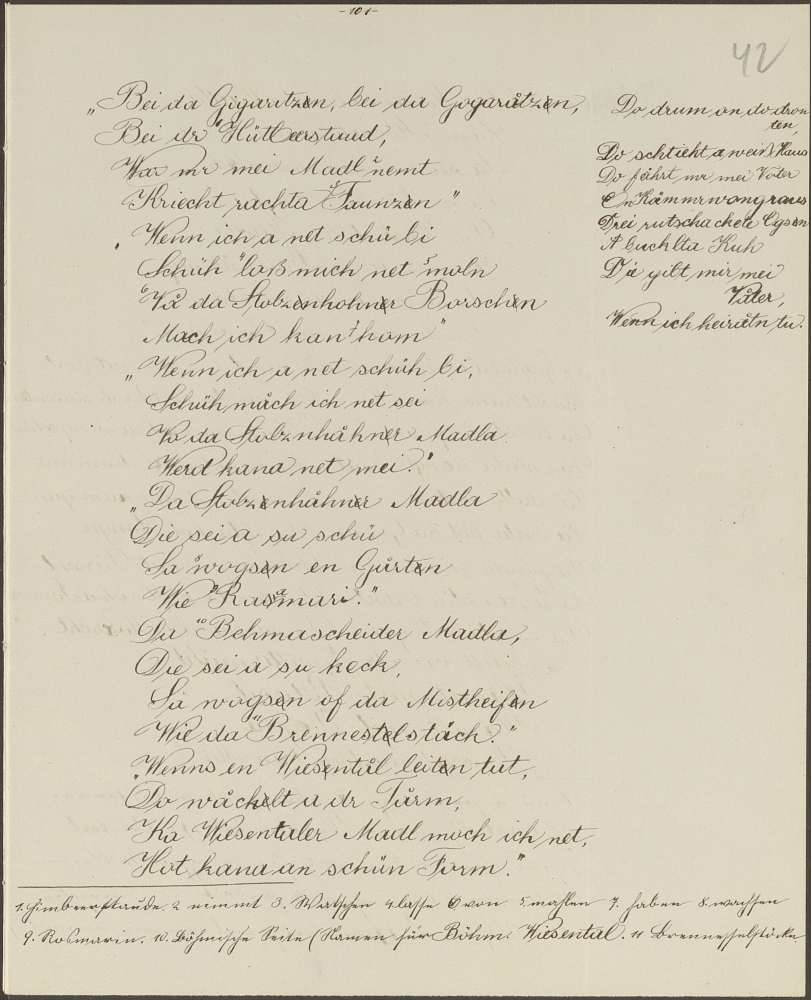 - 101 -
42
„Bei da Gigaritzen, bei da Gogaråtzen,
Bei dr Hütleerstaud,
War mr mei Madl ²nemt
Kriecht rachta ³Taunzen"
„Wenn ich a net schü bi
Schüh ⁴laß mich net ⁵moln
⁶Vå da Stolzenhohner Borschen
Mach ich kan ⁷hom"
„Wenn ich a net schüh bi,
Schüh måch ich net sei
Vo da Stolznhåhner Madla
Werd kana net mei."
„Da Stolzenhåhner Madla
Die sei a su schü
Sa ⁸wogsen en Gårten
Wie ⁹Rasamari."
Da ¹⁰Behmascheider Madla,
Die sei a su keck,
Sa wogsen of da Mistheifen
Wie da ¹¹Brennestelstäck."
„Wenns en Wiesentål leiten tut,
Do wåckelt a dr Tårm,
Ka Wiesentaler Madl moch ich net,
Hot kana an schün Form."
Do drum, an do dron
ten,
Do schtieht a weiß Haus
Do fährt mr mei Voter
En Kåmmrwong raus
Drei rutschackete Ogsen
A buckłta Kuh
Die gibt mir mei
Våter,
Wenn ich heiråtn tu.
1. Himbeerstaude. 2 nimmt 3. Watschen 4 lasse 6 von 5. mahlen 7. haben 8. wachsen
9. Rosmarin. 10. Böhmische Seite (Namen für Böhm. Wiesental. 11 Brennesselstöcke